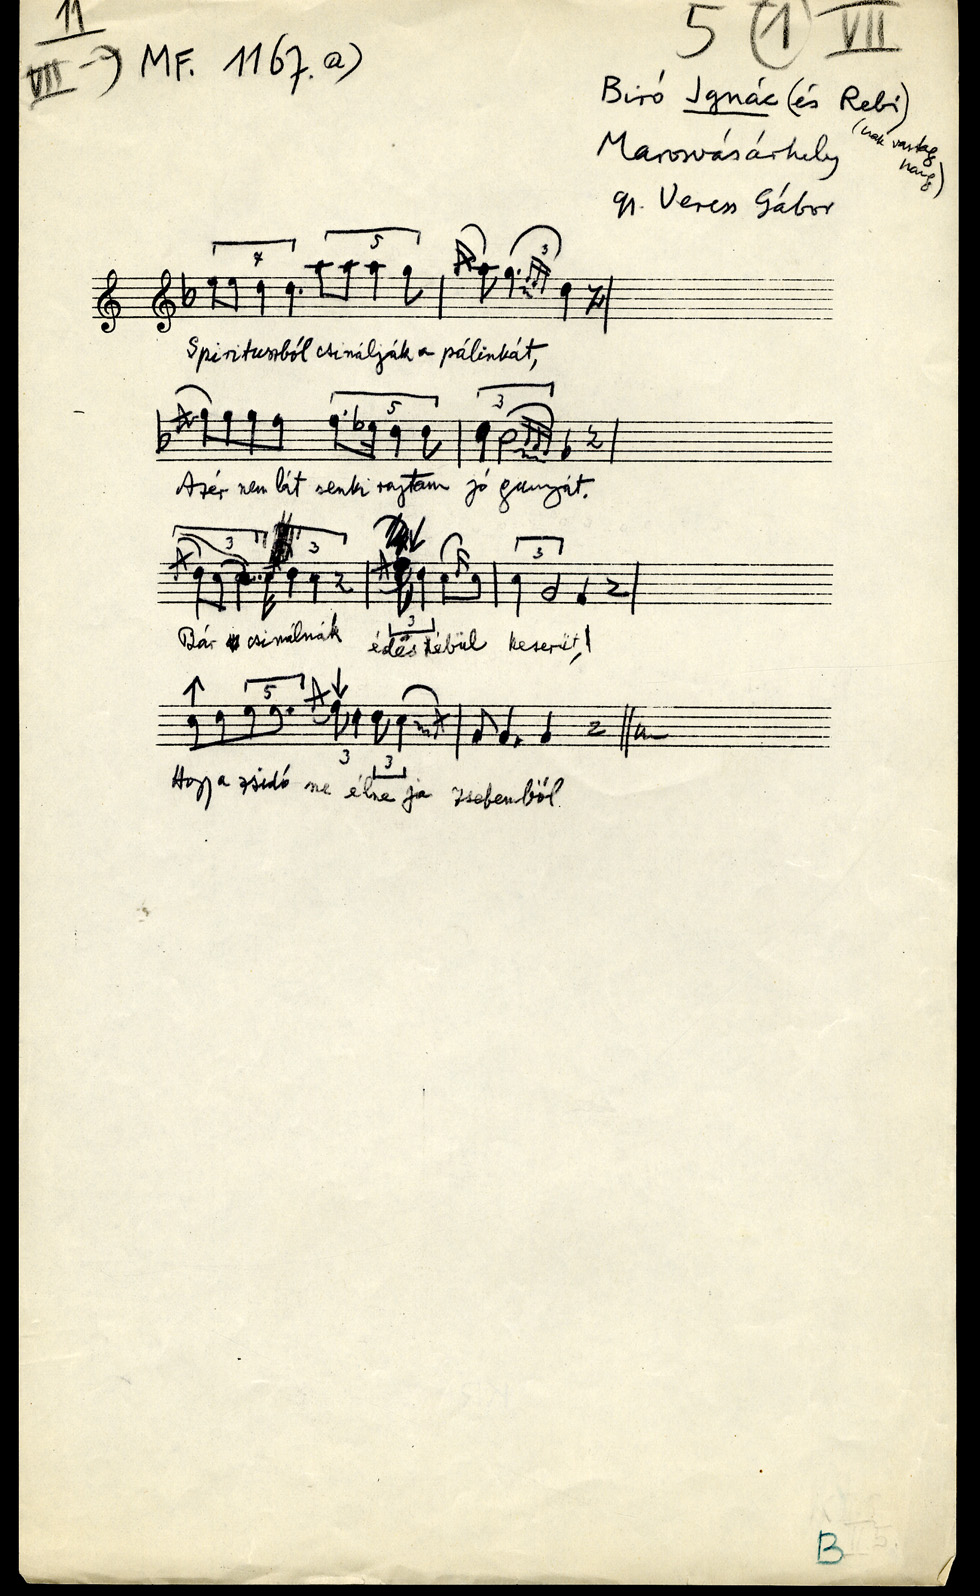 11
VII → MF. 1167. a)
5 (1) VII
Biró Ignác (és Rebi)
(csak vastag hang)
Marosvásárhely
gy. Veress Gábor
4 5 3
Spirituszból csinálják a pálinkát,
5 3
Azér nem lát senki rajtam jó gunyát.
3 3 3
Bár csinálnák édes tébül keserüt,!
3
5
Hogy a zsidó ne élne ja zsebemből.
3 3
B